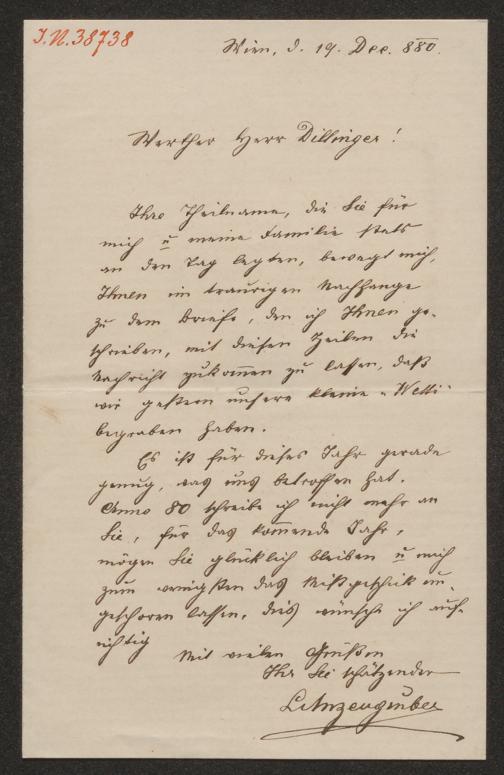 I.N. 38738
Wien, d. 19. Dec. 880.
Werther Herr Dillinger!
Ihre Theilname, die Sie für
mich u meine Familie stets
an den Tag legten, bewegt mich,
Ihnen im traurigen Nachhange
zu dem Briefe, den ich Ihnen ge-
schrieben, mit diesen Zeilen die
Nachricht zukomen zu lassen, daß
wir gestern unsere kleine „Wetti"
begraben haben.
Es ist für dieses Jahr gerade
genug, was uns betroffen hat.
Anno 80 schreibe ich nicht mehr an
Sie, für das komende Jahr,
mögen Sie glücklich bleiben u mich
zum wenigsten das Mißgeschik un-
geschoren lassen, dies wünsche ich auf-
richtig
Mit vielen Grüßen
Ihr Sie schätzender
LAnzengruber